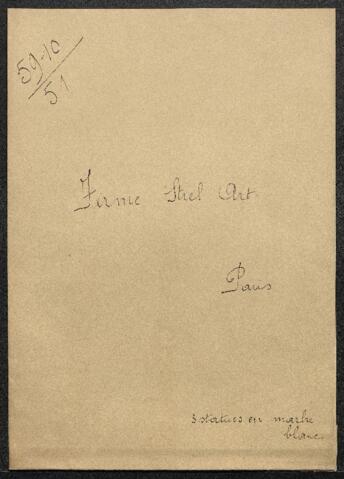 59-10
51
Firme Strel Art.
Paris
3 statues en marbre
blanc